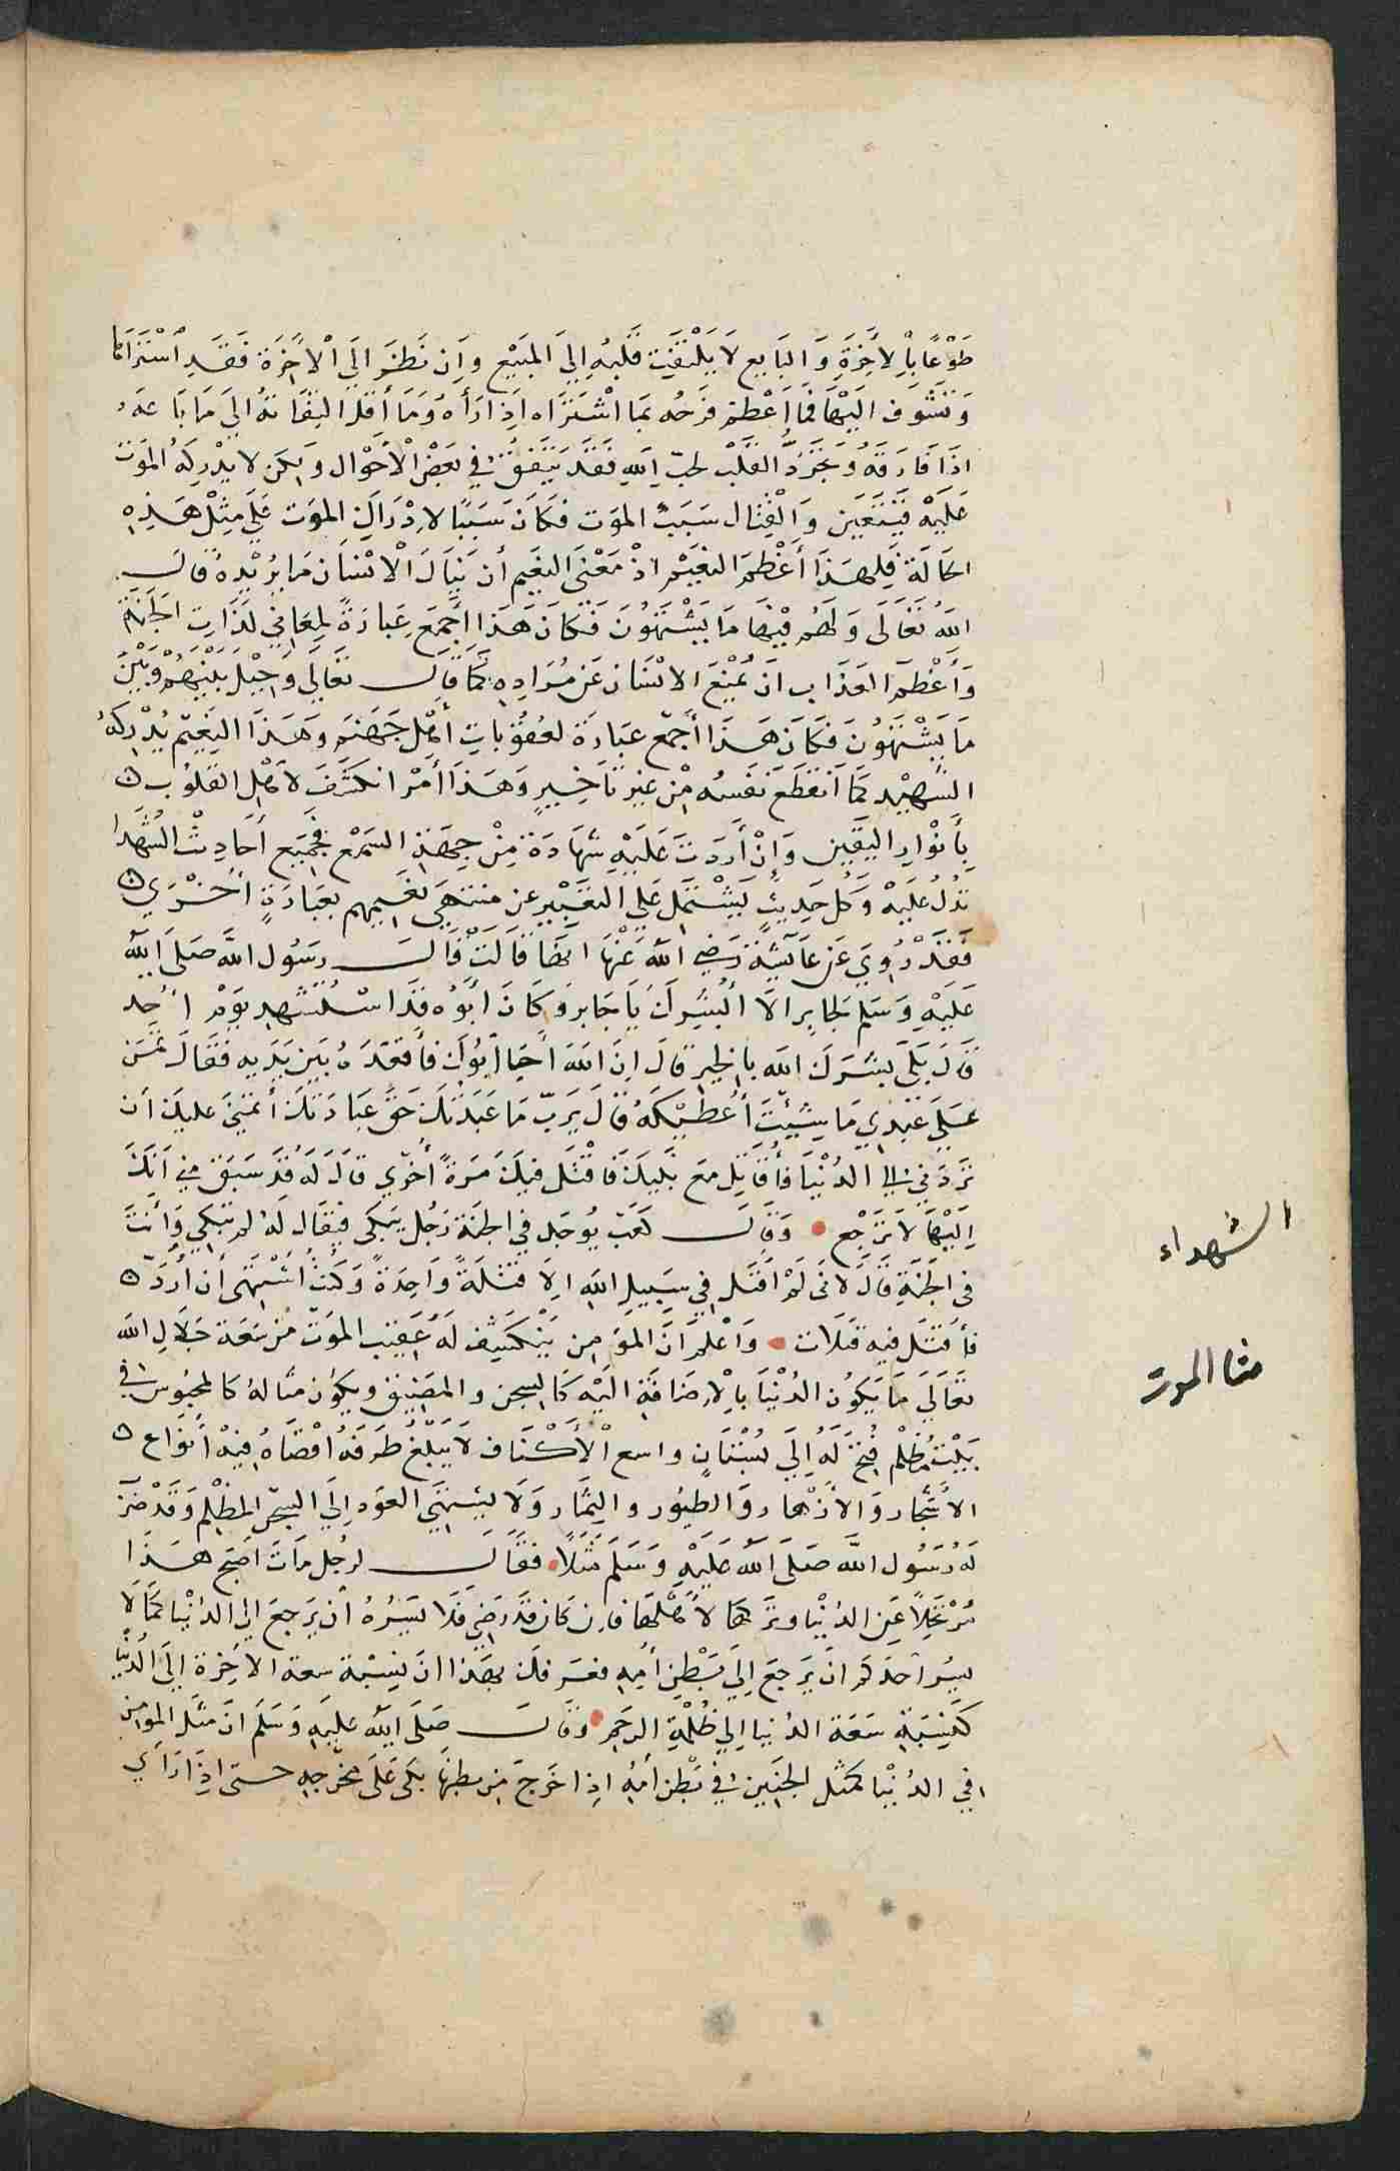 طَوْعًا بِالْآخِرَةِ وَالبَايع لَا يَلْتَفِت قَلبُه إِلىَ المَبِيْع وَإن نَظَرَ إلَى اْلآخِرَة فَقَدِ اْشْتَرَاهَا
وَتَشَوف اليْهَا فَمَا أَعْظمَ فَرَحُه بمَا اشْتَرَاه اذِا رَأهُ وَمَا أقَلَّ التِفَاتهُ إلَى مَا بَاعَهُ
اذَا فَارَقَهُ وَتجَرَّدُ القَلْب لحبّ اللهِ فَقَد يَتَّفِقُ في بعَضْ الْأَحْوَال وَلكِن لا يُدْرِكهُ الموَت
عَليَهْ فَيَتغَيَر وَالْقِتَال سَبَبُ الموَت فكَانَ سَبَبًا لادْرَاك الموَت عَلىَ مِثْل هَذِهِ
الحَالَة فَلِهَذَا أعْظمَ النَعيْم اذْ مَعْنَى النَعِيم أن يَنَالَ الْانْسَان مَا يُرِيْدهُ قالَ
اللهُ تعَالَى وَلَهُم فِيْهَا مَا يَشْتَهُونَ فَكَانَ هَذَا أجْمَعَ عِبَارَةً لِمعَانِي لَذَّاتِ الجَنَّة
وَأَعْظَم العَذَاب انَ يُمْنَعَ الانْسَان عَن مُرَادِهِ كمَا قَالَ تعَالَى وَحِيْلَ بَيْنَهُمْ وَبَيْنَ
مَا يَشْتَهُونَ فَكَانَ هَذَا أجْمع عِبَارَة لعُقُوبَاتِ أهْل جَهَنّم وَهَذَا النَعِيم يُدْرِكهُ
الشَّهِيْد كمَا انقَطَعَ نفَسُه مِنْ غيْر تَأخِيرٍ وَهَذَا أمْر انكَشَفَ لأهْل القلوُب
بِأنوَارِ اليَقِين وَإنْ أرَدتَ عَليَهِ شَهَادَة مِنْ جِهَة السَمْع فجَمِيع أحَادِيثْ الشُهَدَا
تدُلُ عَليَهْ وَكُل حَدِيثٍ يَشْتَمل عَلىَ التَعْبِير عن منتَهَى نعَيمِهم بعِبَارَةٍ أخْرَى
فَقَدْ رُوِيَ عَن عَايشَة رَضِي اللهَ عَنْهَا انهَا قَالَتْ قَالَ رسَوُل الله صَلىَ الله
عَليَهِ وَسَلم لجَابِر الَا أبُشِّركَ يَا جَابر وَكَانَ أبَوُه قَد اسْتُشْهِد يوَم أحُد
قَالَ بَلَى بَشّرَكَ الله بالخيرِ قالَ انَ اللهَ أحيَا أبَوُكَ فأقعَدَهُ بَين يَدَيهِ فقَالَ تمَنَّ
عَلىَ عَبْدِي مَا شِيْتَ أُعْطيكَهُ قالَ يَربّ مَا عَبَدتُكَ حَقَّ عِبَادَتكَ أتمَنىّ عَليكَ ان
تَرُدَني إلى الدُنْيَا فأقَاتِل معَ نَبيكَ فأقْتَل فيكَ مَرَةً أخْرَى قالَ لَه قد سَبَقَ مِني أنَكَ
إليَهْا لاَ تَرْجِعْ وَقَالَ كَعب يُوجَد في الجنَة رَجُل يبَكي فيقَال لَهُ لم تبكي وَأنتَ
في الجَنَةِ قَالَ لاَنيّ لَمْ أقتَل فِي سَبِيلِ اللهِ الاَ قَتْلَةً وَاحِدَةً وَكُنتُ أشْتَهَى أن أُردَّ
فأُقتَل فيه قتَلَات وَاعْلم أنَّ الموَمِن يَنْكَشِف لَهُ عَقِيب الموَت مْن سَعَة جَلَالِ الله
تعَالَى مَا يَكوُن الدُنْيَا باِلْاضَافَة اليَه كَالسِجن والمضِيق ويكوُن مثَالهُ كالمحبُوس في
بَيْت مُظْلم فُتِحَ لَهُ إلَى بُسْتَانٍ واسع الْأكْنَاف لاَ يَبْلغ طَرَفهُ أقْصَاهُ فيْه أنوَاع
الاَشْجار وَالاَزْهار وَالطيُور والثِّمَار وَلَا يشتَهِي العوَد إلَى السِّجن المظْلم وَقَدْ ضَرَب
لَهُ رَسُول الله صَلىَ الله عَليَهِ وَسَلَم مَثَلًا فقَالَ لرجُل مَاتَ أصَبح هَذَا
مُرْتحِلًا عَن الدُنْيَا وترَكهَا لأهْلهَا فاِن كَان قَد رَضِي فَلَا يَسُرهُ أن يَرجعَ إلىَ الدُنْيَا كمَا لَا
يسُر أحَدكُم ان يَرجعَ إلَى بَطْن أمِهِ فعَرفَك بهَذا انَ نِسْبَة سعَة الآخِرَة إلىَ الدُنْيَا
كَنِسْبَة سَعَة الدُنيا إلى ظُلْمَة الرحَم وقَالَ صَلَى اللهُ عَليَهِ وَسَلَم انَ مَثَل الموُمِن
في الدُنْيَا كمَثل الجنَيِن في بَطْن أمّهِ اذِا خَرجَ مِن بَطنِهَا بَكَى عَلىَ مخْرَجِهِ حتى إذِا رَأى
الشهداء
مثال الموت